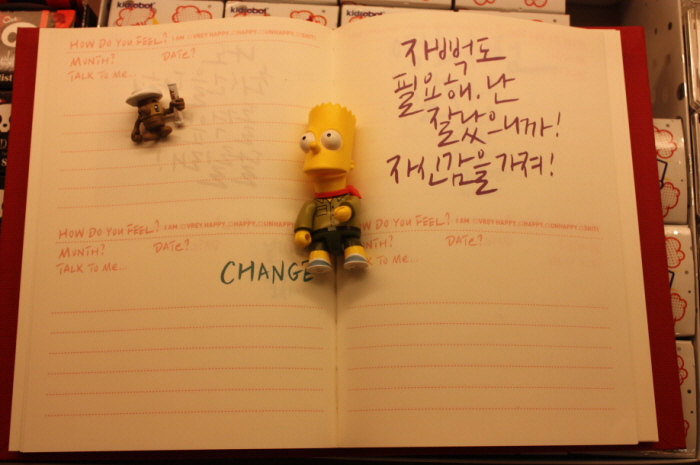 kidrobot
kidrobot
kidrobot
HOW DO YOU FEEL? I AM □VREY HAPPY □HAPPY □UNHAPPY □SHIT!
MONTH? DATE?
TALK TO ME...
자뻑도
필요해. 난
잘났으니까!
자신감을 가져!
HOW DO YOU FEEL? I AM □VREY HAPPY □HAPPY □UNHAPPY □SHIT!
MONTH? DATE?
TALK TO ME...
CHANGE
W DO YOU FEEL? I AM □VREY HAPPY □HAPPY □UNHAPPY □SHIT!
NTH? DATE?
K TO ME...